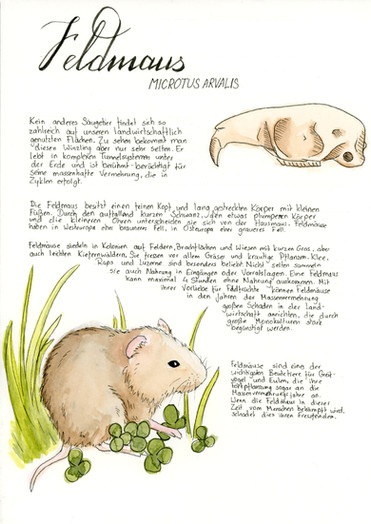 Feldmaus
MICROTUS ARVALIS
Kein anderes Säugetier findet sich so
zahlreich auf unseren landwirtschaftlich
genutzten Flächen. Zu sehen bekommt man
diesen Winzling aber nur sehr selten. Er
lebt in komplexen Tunnelsystemen unter
der Erde und ist berühmt-berüchtigt für
seine massenhafte Vermehrung, die in
Zyklen erfolgt.
Die Feldmaus besitzt einen feinen Kopf und lang gestreckten Körper mit kleinen
Füßen. Durch den auffallend kurzen Schwanz, den etwas plumperen Körper
und die kleineren Ohren unterscheiden sie sich von der Hausmaus. Feldmäuse
haben in Westeuropa eher braunem Fell, in Osteuropa eher graueres Fell.
Feldmäuse siedeln in Kolonien auf Feldern, Brachflächen und Wiesen mit kurzem Gras, aber
auch leichten Kiefernwäldern. Sie fressen vor allem Gräser und krautige Pflanzen. Klee,
Raps und Luzerne sind besonders beliebt. Nicht selten sammeln
sie auch Nahrung in Eingängen oder Vorratslagern. Eine Feldmaus
kann maximal 4 Stunden ohne Nahrung auskommen. Mit
ihrer Vorliebe für Feldfrüchte können Feldmäuse
in den Jahren der Massenvermehrung
großen Schaden in der Land-
wirtschaft anrichten, die durch
große Monokulturen stark
begünstigt werden.
Feldmäuse sind eines der
wichtigsten Beutetiere für Greif-
vögel und Eulen, die ihre
Fortpflanzung sogar an die
Massenvermehrungsjahre an-
Wenn die Feldmaus in dieser
Zeit vom Menschen bekämpft wird,
schadet dies ihren Fressfeinden.